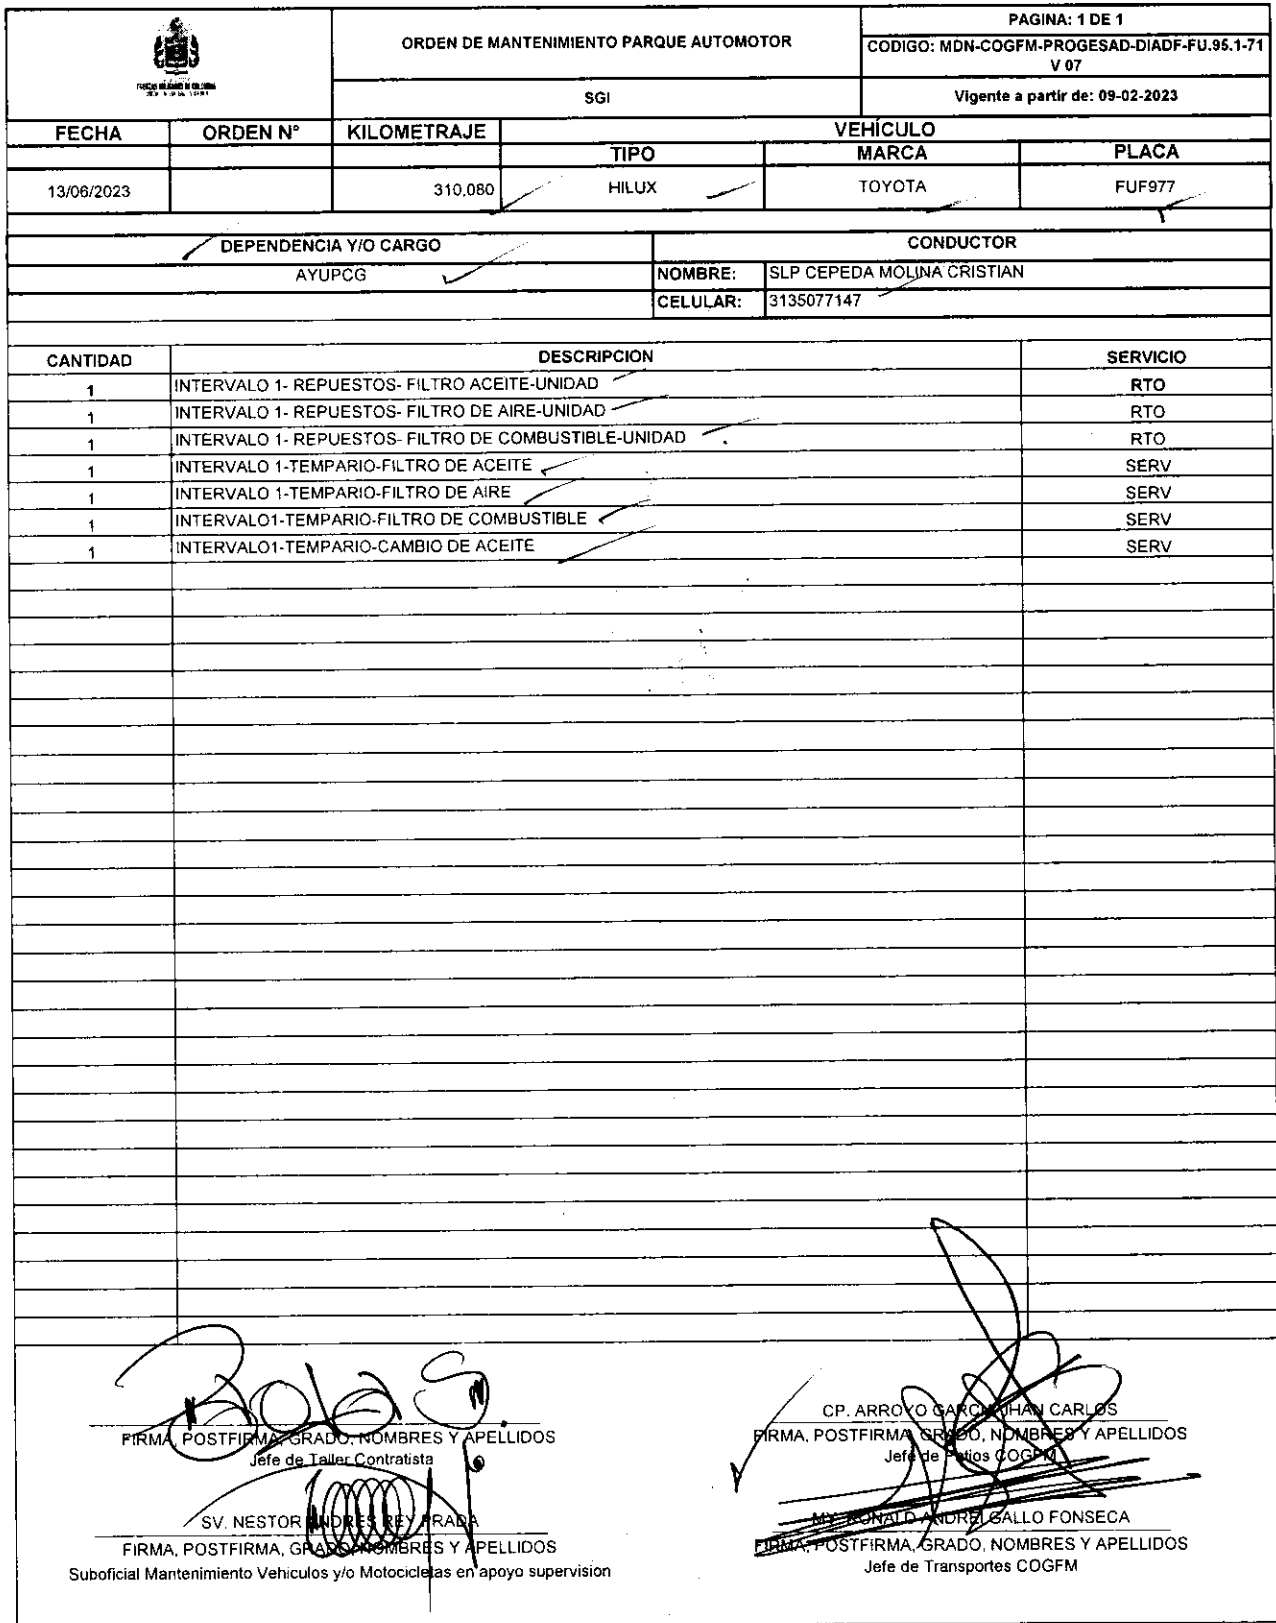 PAGINA: 1 DE 1
ORDEN DE MANTENIMIENTO PARQUE AUTOMOTOR
CODIGO: MDN-COGFM-PROGESAD-DIADF-FU.95.1-71
V 07
SGI
Vigente a partir de: 09-02-2023
FECHA ORDEN N° KILOMETRAJE VEHÍCULO
TIPO MARCA PLACA
13/06/2023 310,080 HILUX TOYOTA FUF977
DEPENDENCIA Y/O CARGO CONDUCTOR
AYUPCG NOMBRE: SLP CEPEDA MOLINA CRISTIAN
CELULAR: 3135077147
CANTIDAD DESCRIPCION SERVICIO
1 INTERVALO 1- REPUESTOS- FILTRO ACEITE-UNIDAD RTO
1 INTERVALO 1- REPUESTOS- FILTRO DE AIRE-UNIDAD RTO
1 INTERVALO 1- REPUESTOS- FILTRO DE COMBUSTIBLE-UNIDAD RTO
1 INTERVALO 1-TEMPARIO-FILTRO DE ACEITE SERV
1 INTERVALO 1-TEMPARIO-FILTRO DE AIRE SERV
1 INTERVALO1-TEMPARIO-FILTRO DE COMBUSTIBLE SERV
1 INTERVALO1-TEMPARIO-CAMBIO DE ACEITE SERV
FIRMA, POSTFIRMA, GRADO, NOMBRES Y APELLIDOS
Jefe de Taller Contratista
CP. ARROYO GARCIA JHAN CARLOS
FIRMA, POSTFIRMA, GRADO, NOMBRES Y APELLIDOS
Jefe de Patios COGFM
SV. NESTOR ANDRES REY PRADA
FIRMA, POSTFIRMA, GRADO, NOMBRES Y APELLIDOS
Suboficial Mantenimiento Vehiculos y/o Motocicletas en apoyo supervision
MY. RONALD ANDREI GALLO FONSECA
FIRMA, POSTFIRMA, GRADO, NOMBRES Y APELLIDOS
Jefe de Transportes COGFM